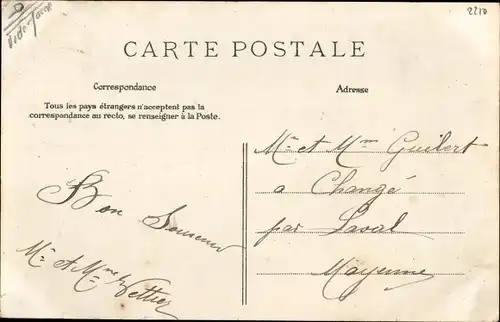 2210
CARTE POSTALE
Correspondance
Adresse
Tous les pays étrangers n'acceptent pas la
correspondance au recto, se renseigner à la Poste.
Mr et Mme Guilert
a Changé
par Laval
Mayenne
Bon Souvenir
Mr et Mme Vettier